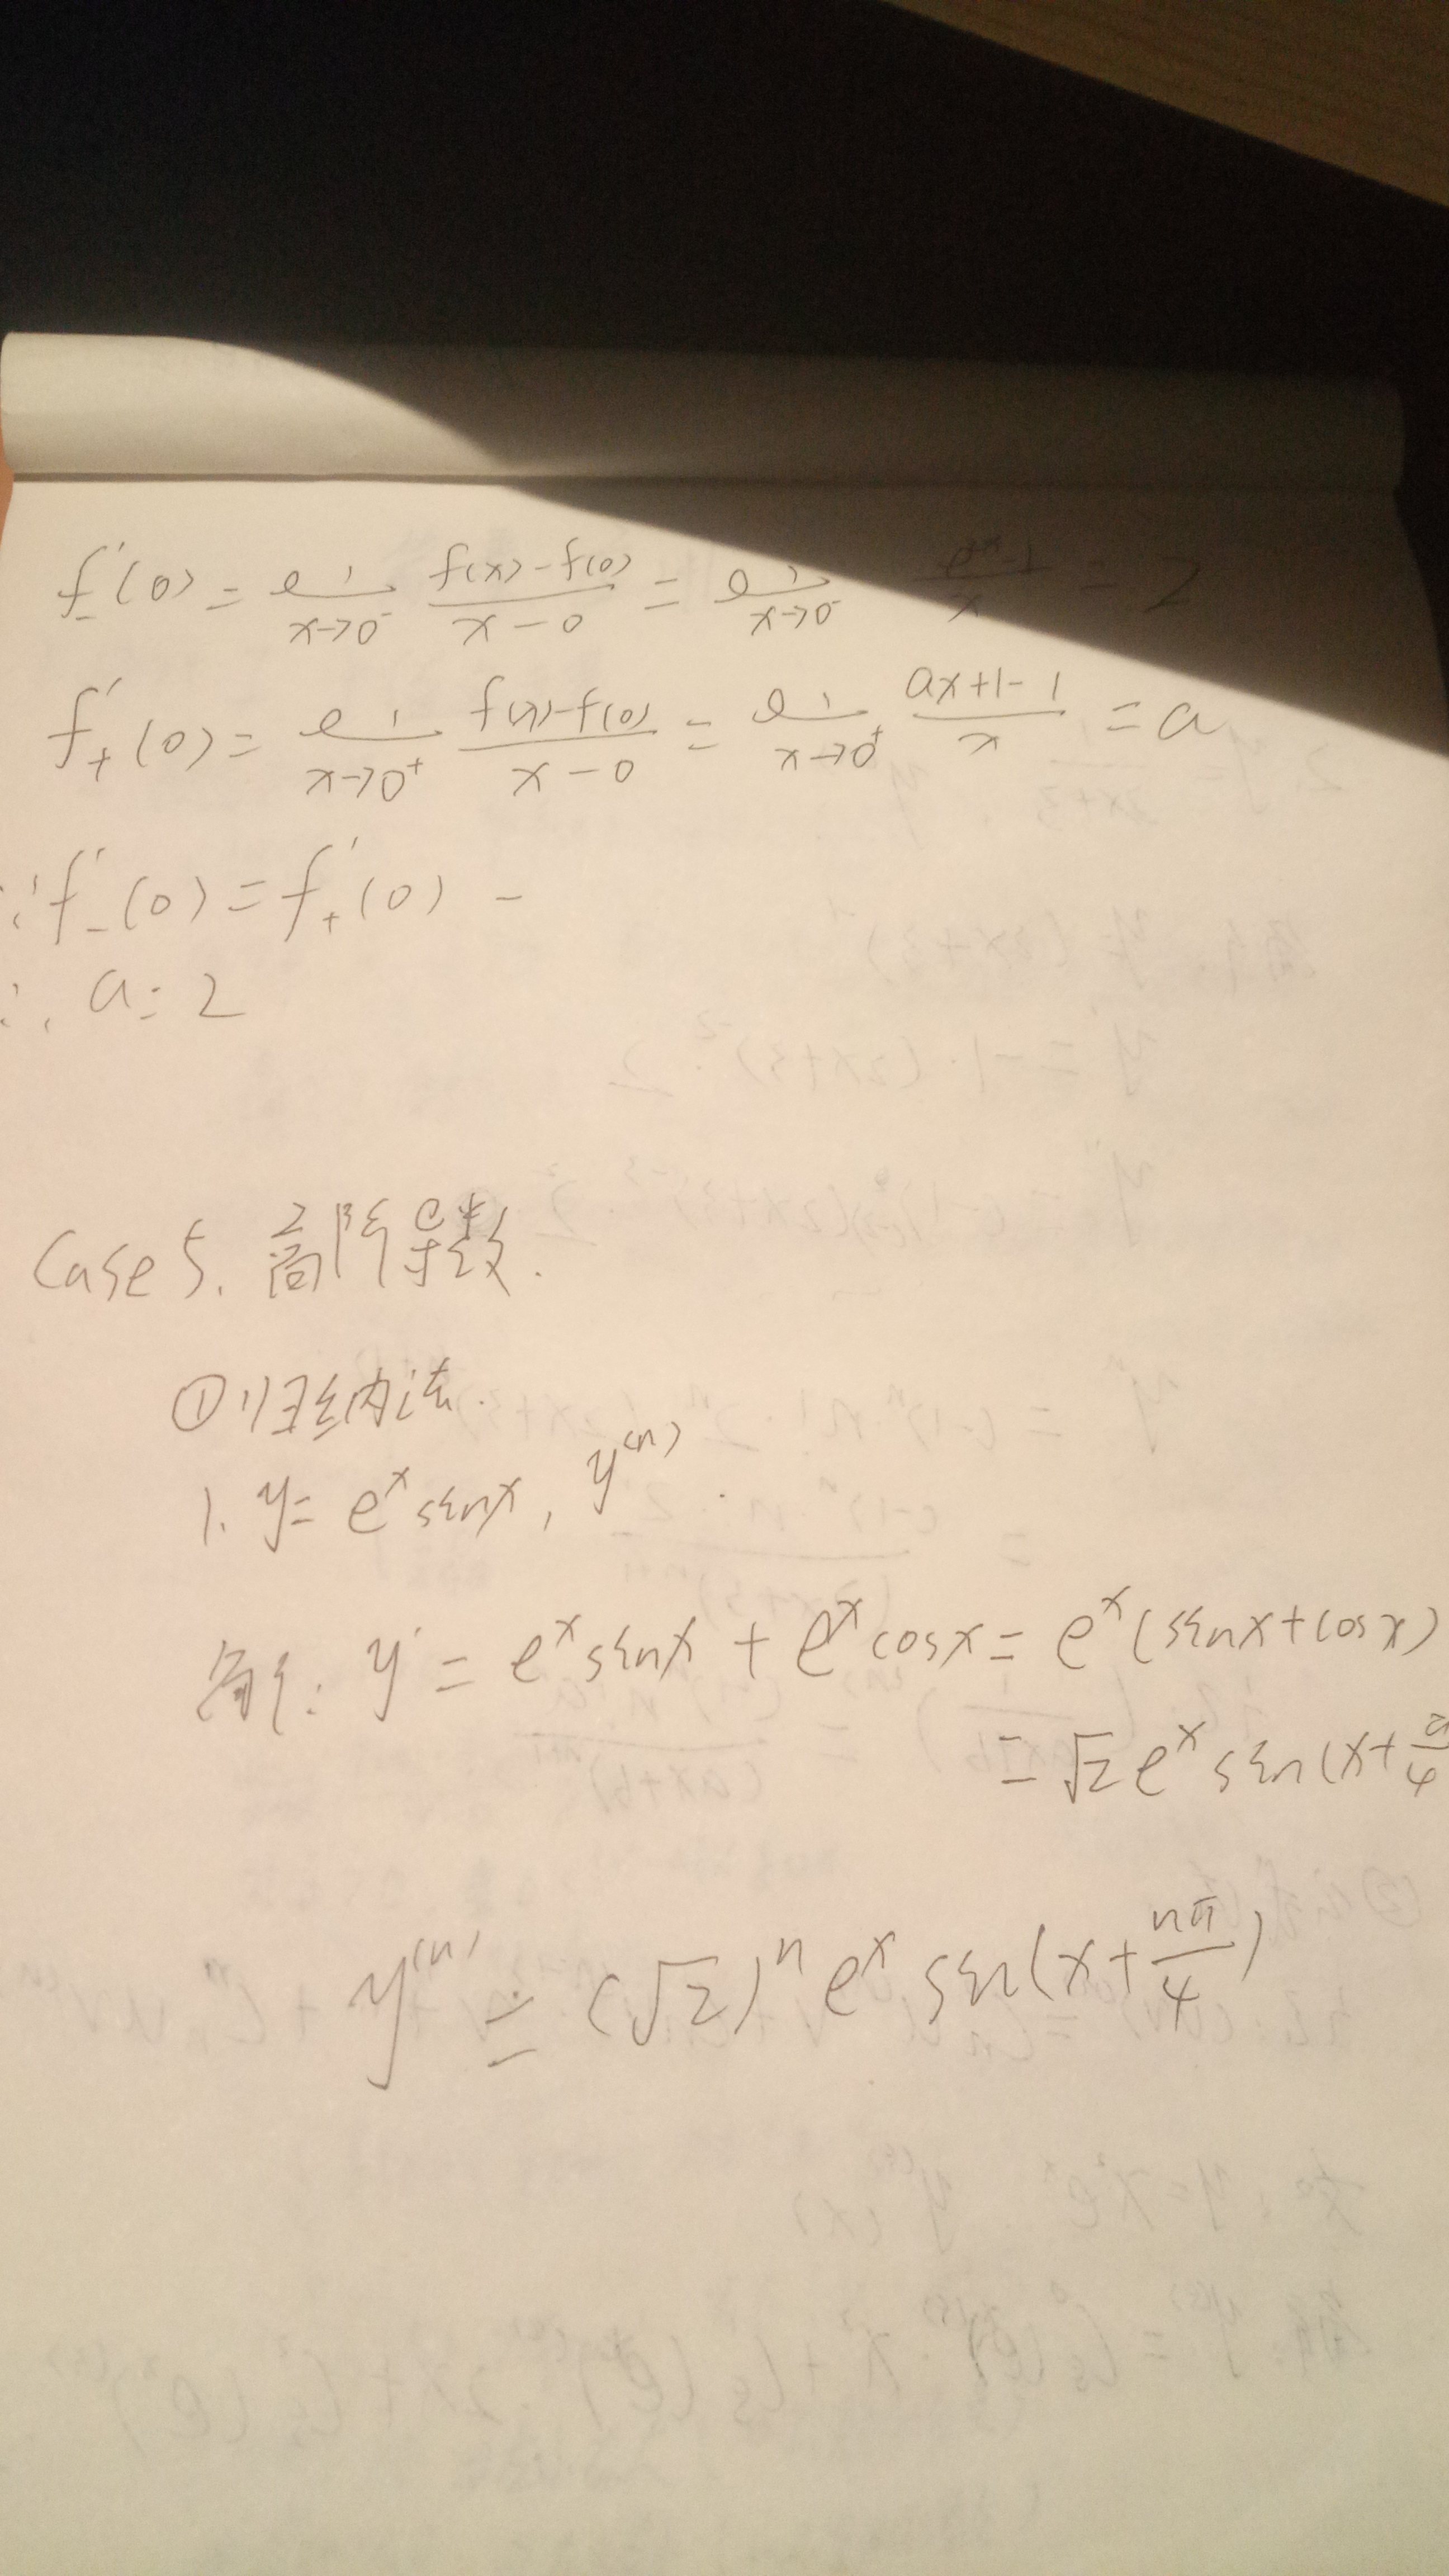 f'₋(0) = lim x→0⁻ (f(x)-f(0))/(x-0) = lim x→0⁻ (e²ˣ-1)/x = 2
f'₊(0) = lim x→0⁺ (f(x)-f(0))/(x-0) = lim x→0⁺ (ax+1-1)/x = a
∵ f'₋(0) = f'₊(0)
∴ a = 2
Case 5. 高阶导数.
①归纳法.
1. y = eˣ sinx, y⁽ⁿ⁾.
解: y' = eˣ sinx + eˣ cosx = eˣ (sinx + cosx)
= √2 eˣ sin(x + π/4
y⁽ⁿ⁾ = (√2)ⁿ eˣ sin(x + nπ/4)